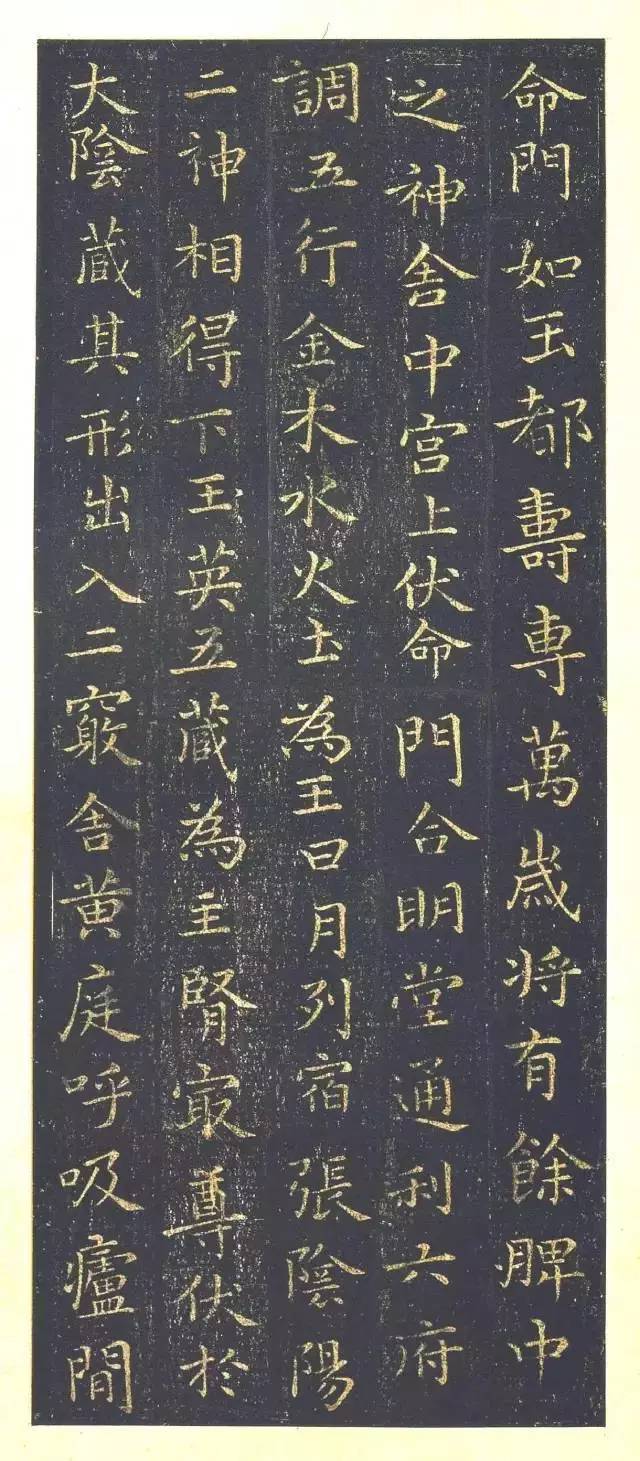 命門如王都壽專萬歲將有餘脾中
之神舍中宫上伏命門合明堂通利六府
調五行金木水火土為王日月列宿張陰陽
二神相得下玉英五藏為主腎最尊伏於
大陰藏其形出入二竅舍黄庭呼吸廬間